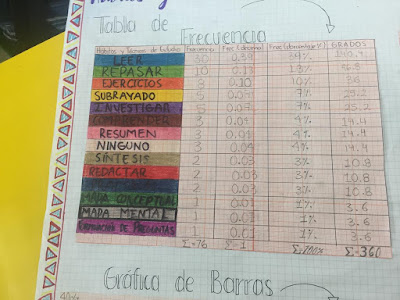 Tabla de
Frecuencia
Hábitos y Técnicas de Estudio Frecuencia Frec (decimal) Frec (porcentaje %) GRADOS
LEER 30 0.39 39%
REPASAR 10 0.13 13%
EJERCICIOS 0.10 10% 36
SUBRAYADO 5 0.07 7% 25.2
INVESTIGAR 5 0.07 7% 25.2
COMPRENDER 3 0.04 4% 14.4
RESUMEN 3 0.04 4% 14.4
NINGUNO 3 0.04 4% 14.4
SÍNTESIS 2 0.03 3% 10.8
REDACTAR 2 0.03 3% 10.8
2 0.03 3% 10.8
2 0.03 3% 10.8
MAPA CONCEPTUAL 1 0.01 1% 3.6
MAPA MENTAL 1 0.01 1% 3.6
FORMULACIÓN DE PREGUNTAS 1 0.01 1% 3.6
Σ=76 Σ=1 Σ=100% Σ=360
Gráfica de Barras